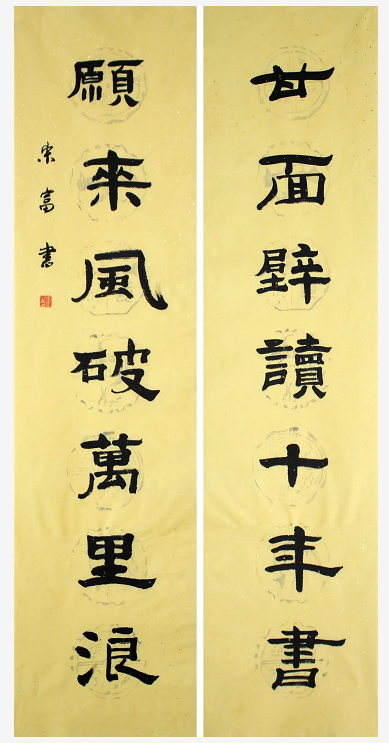 甘面壁讀十年書
願來風破萬里浪
宋富書